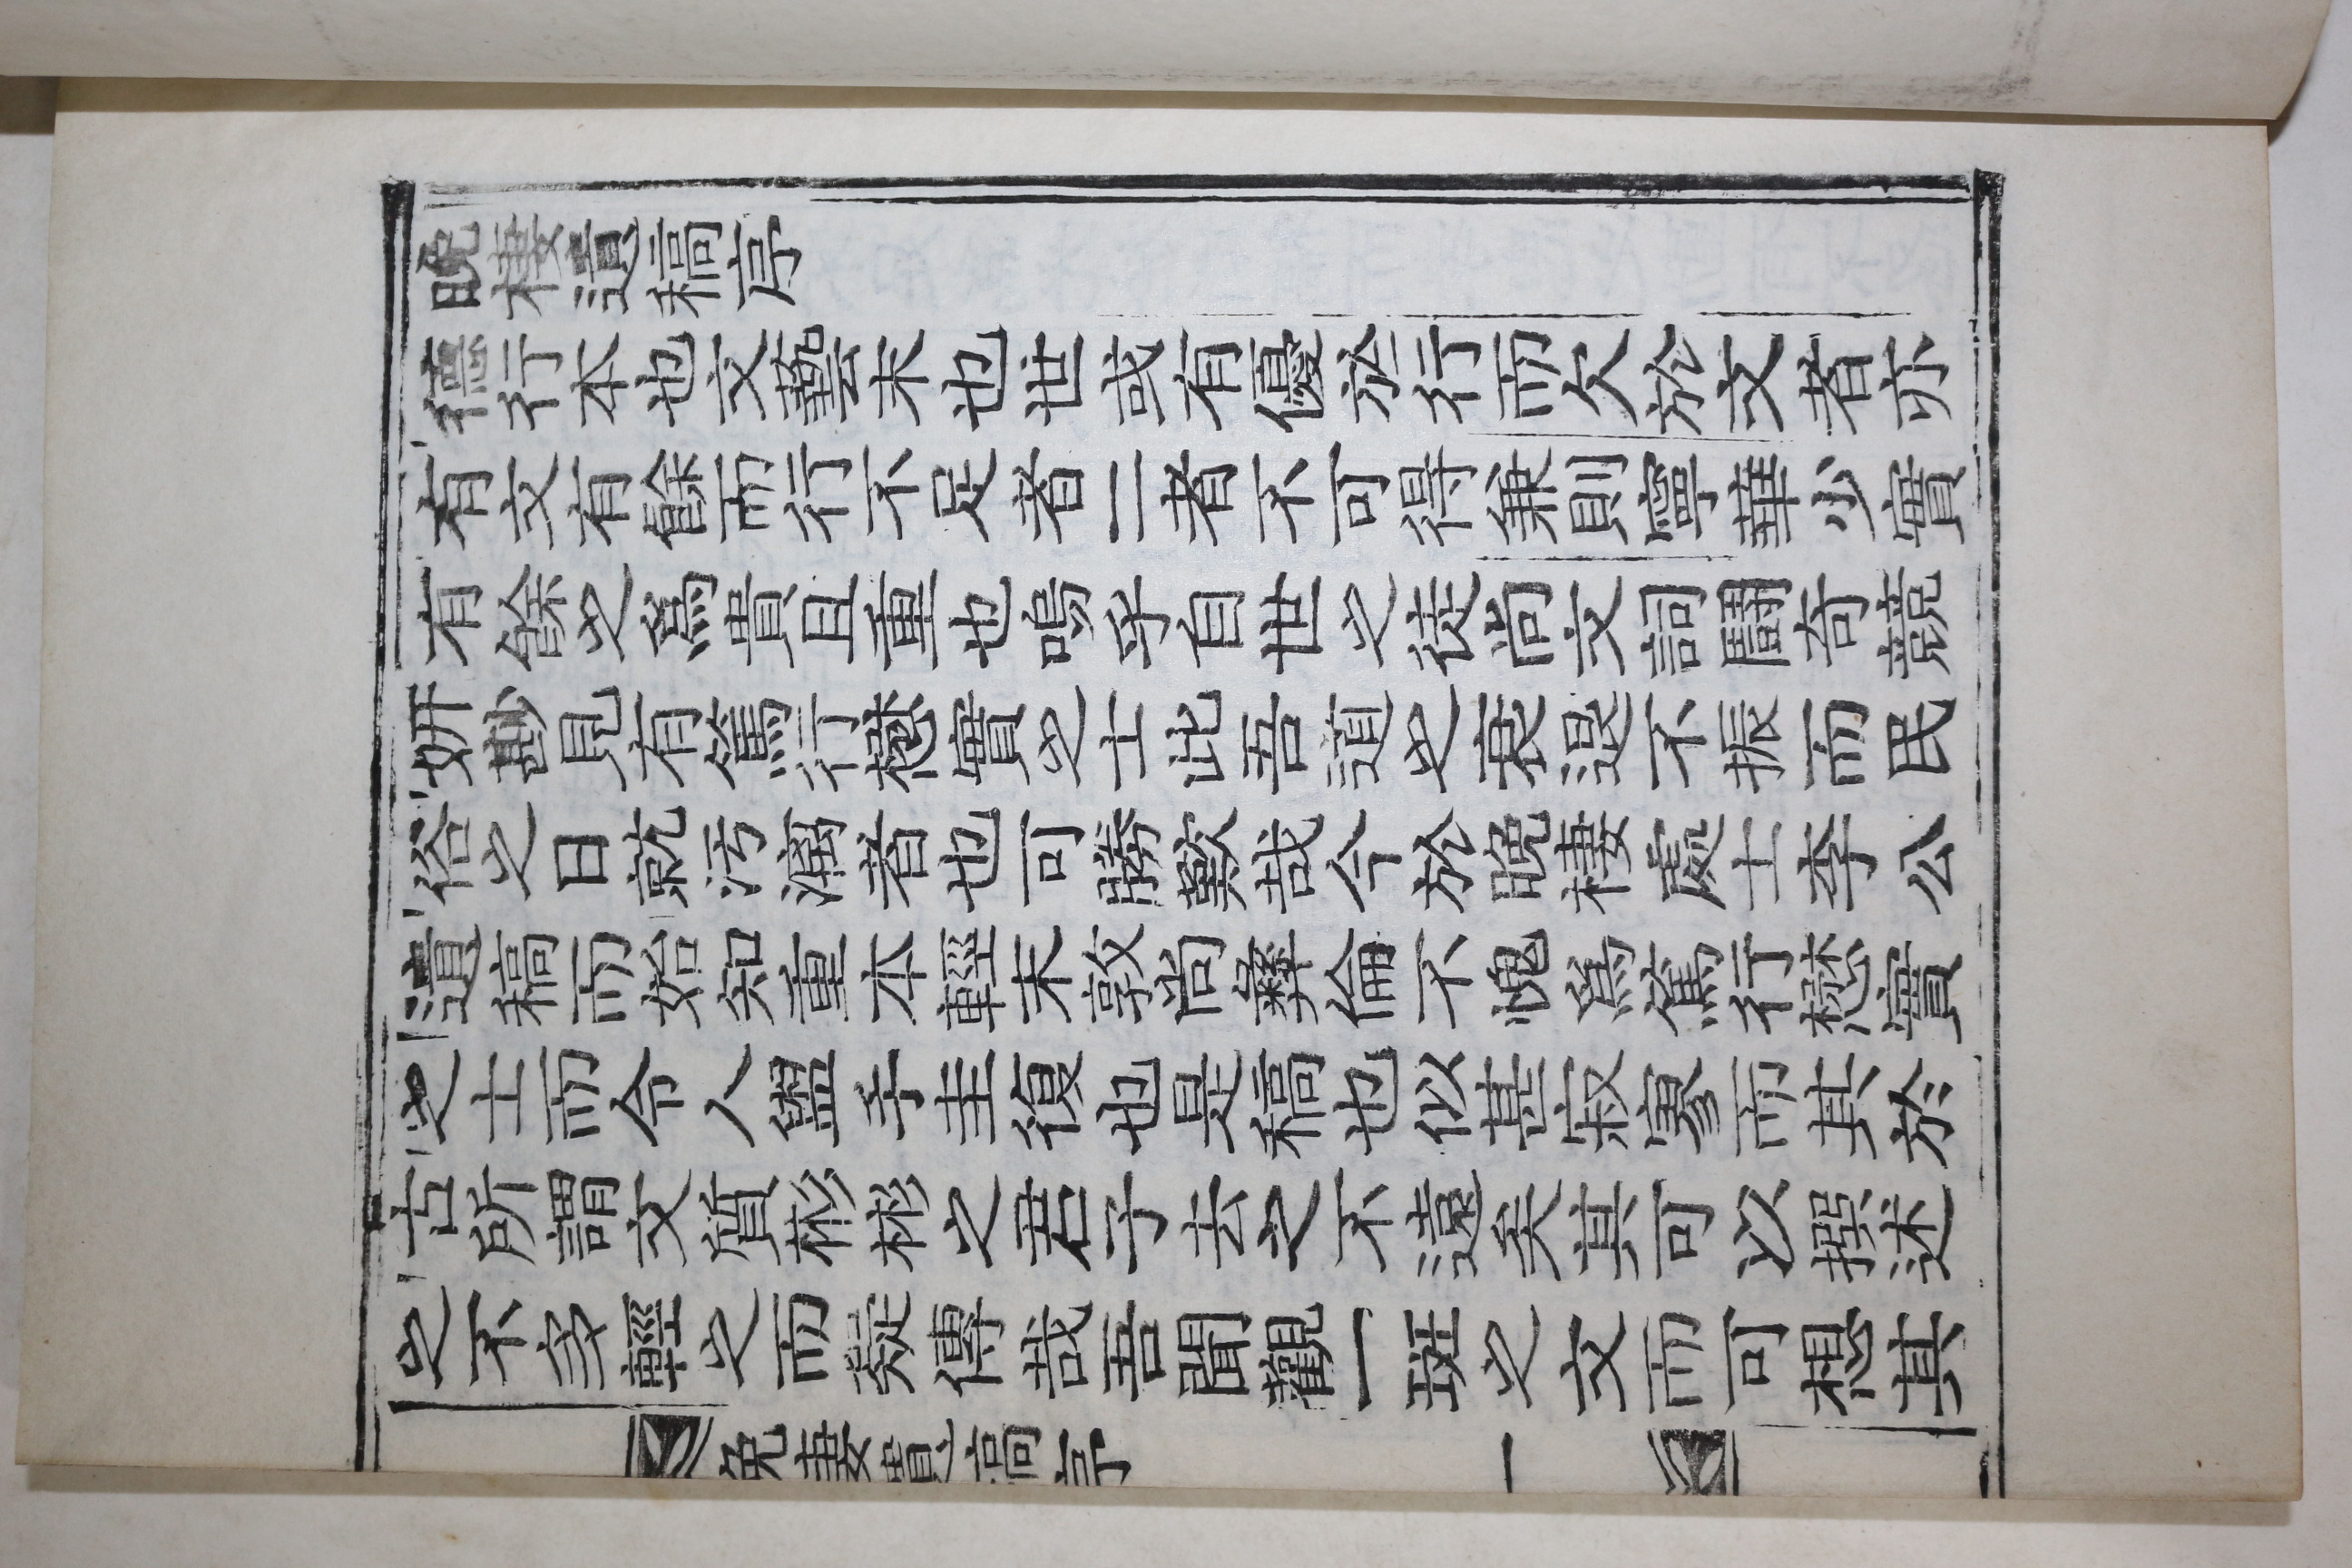 晩棲遺稿序
德行本也文藝末也世或有優於行而欠於文者亦
有文有餘而行不足者二者不可得兼則寧華少實
有餘之爲貴且重也嗚乎自世之徒尚文詞鬪奇競
妍尠見有篤行懋實之士此吾道之衰退不振而民
俗之日就汚漓者也可勝歎哉今於晩棲處士李公
遺稿而始知重本輕末敦尚彝倫不愧爲篤行懋實
之士而令人盥手圭復也是稿也似甚寂寥而其於
古所謂文質彬彬之君子去之不遠矣其可以撰述
之不多輕之而疑傳哉吾聞觀一斑之文而可想其
晩棲遺稿序
一